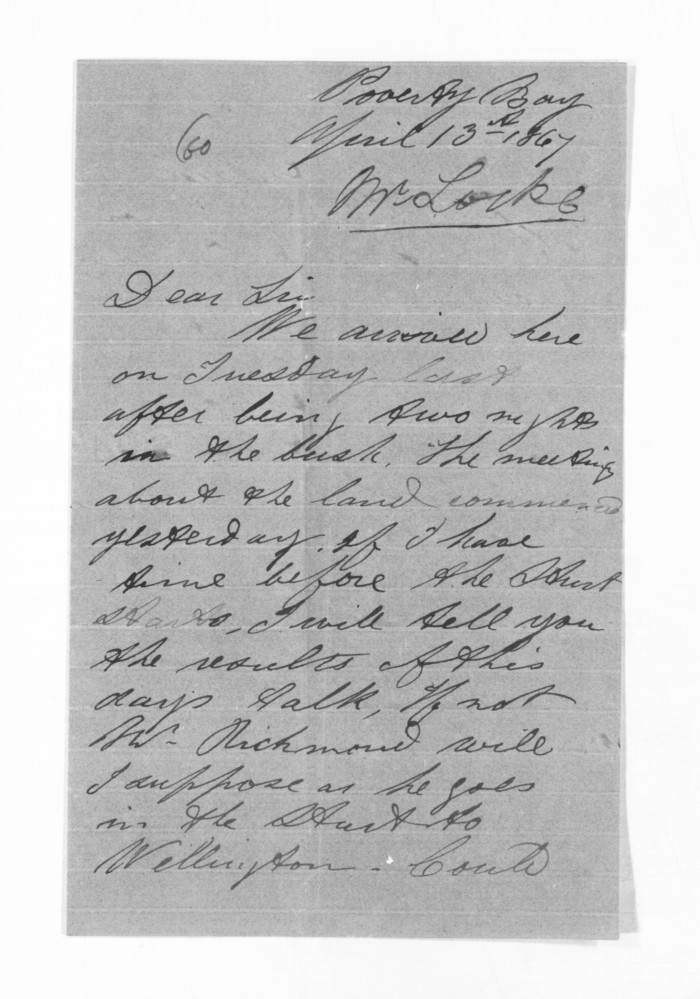 Poverty Bay
(60
April 13th 1867
Mr Locke
Dear Sir
We arrived here
on Tuesday last
after being two nights
in the bush. The meeting
about the land commenced
yesterday. if I have
time before the Sturt
starts, I will tell you
the results of this
days talk, If not
Mr Richmond will
I suppose as he goes
in the Sturt to
Wellington - Could